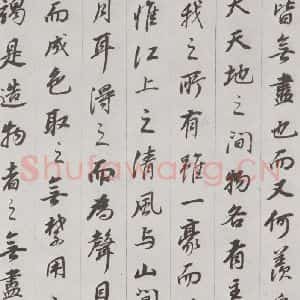 皆無盡也而又何羨
夫天地之間物各有主
我之所有雖一豪而
惟江上之清風与山間
月耳得之而為聲目
而成色取之無禁用
竭是造物者之無盡
Shufawang.CN